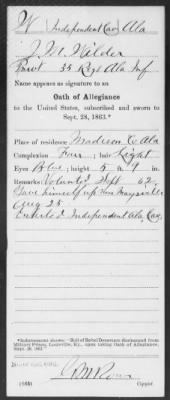 W | Independent Cav | Ala
J. M. Wilder
Privt 35 Regt Ala Inf
Name appears as signature to an
Oath of Allegiance
to the United States, subscribed and sworn to
Sept. 28, 1863.*
Place of residence Madison Co Ala
Complexion Fair ; hair Light
Eyes Blue ; height 5 ft. 9 in.
Remarks: Volunt'd Sept 62
Gave himself up near Maysville
Aug 25
Enlist'd Independent Ala. Cav.
*Indorsement shows: "Roll of Rebel Deserters discharged from Military Prison, Louisville, Ky., upon taking Oath of Allegiance, Sept. 28, 1863."
(639b)
Copyist